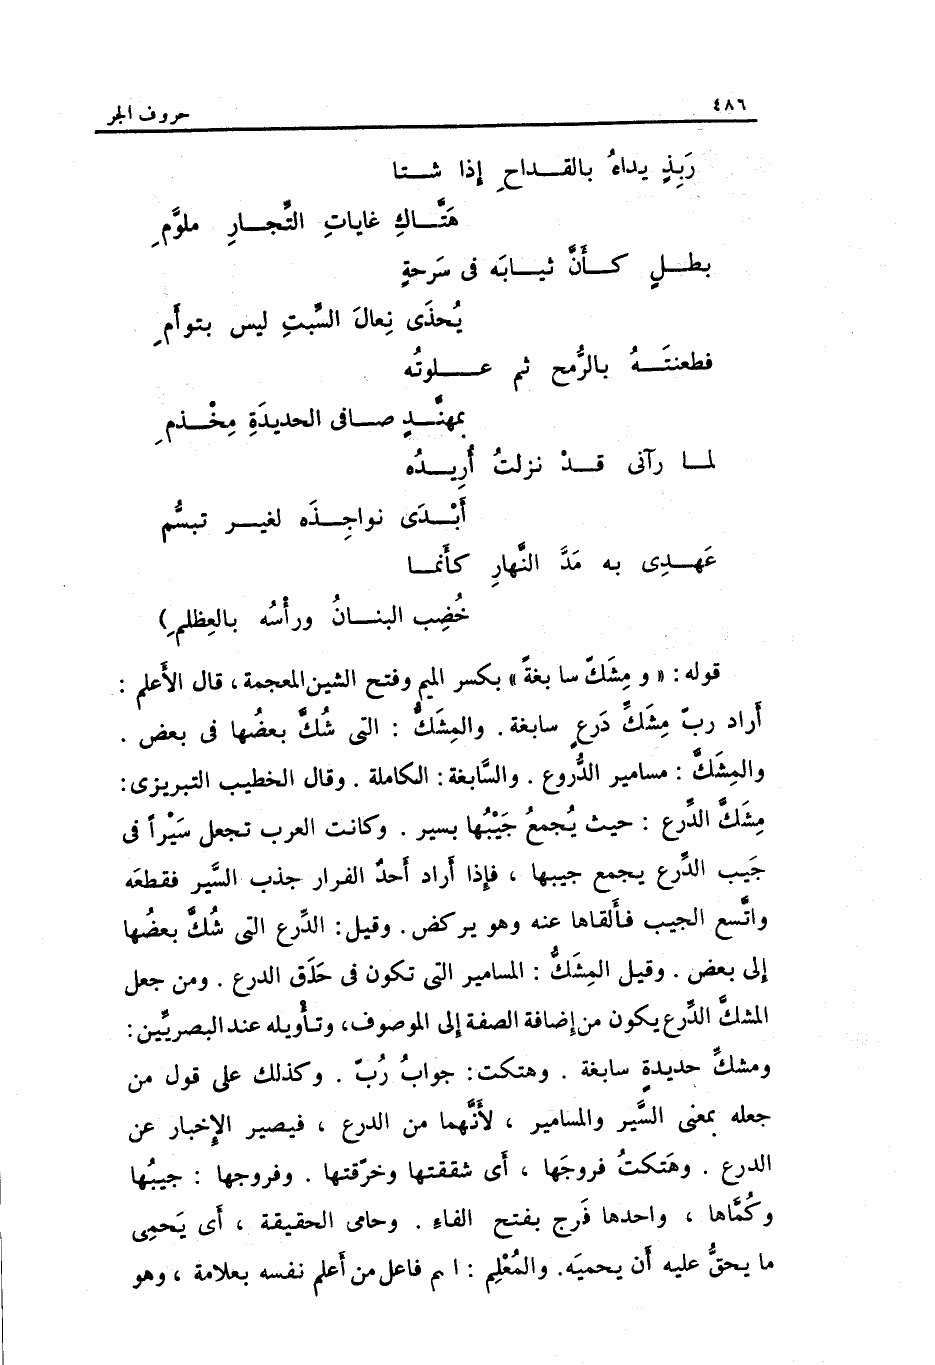 ٤٨٦
حروف الجر
رَبِذٍ يداهُ بالقـداحِ إذا شـتا
هَتَّـاكِ غاياتِ التِّجـارِ ملوَّمِ
بطـلٍ كـأَنَّ ثيـابَه فى سَرحةٍ
يُحذَى نِعالَ السِّبتِ ليس بتوأَمِ
فطعنتَـهُ بالرُّمح ثم عـلوتُه
بمهنَّـدٍ صـافى الحديدَةِ مِخْـذمِ
لمـا رآنى قـدْ نزلتُ أُرِيـدُه
أَبْـدَى نواجِـذَه لغيـر تبسُّم
عَهـدِى به مَدَّ النَّهارِ كأَنمـا
خُضِب البنـانُ ورأْسُه بالعِظلمِ)
قوله: «ومِشَكّ سابغةً» بكسر الميم وفتح الشين المعجمة، قال الأَعلم :
أَراد ربّ مِشَكِّ دَرعٍ سابغة . والمِشَكُّ : التى شُكَّ بعضُها فى بعض .
والمِشَكُّ : مسامير الدُّروع . والسَّابغة : الكاملة . وقال الخطيب التبريزى :
مِشَكُّ الدِّرع : حيث يُجمعُ جَيْبُها بسير . وكانت العرب تجعل سَيْراً فى
جَيب الدِّرع يجمع جيبها ، فإذا أَراد أَحدٌ الفرار جذب السَّير فقطعَه
واتَّسع الجيب فأَلقاها عنه وهو يركض . وقيل : الدِّرع التى شُكَّ بعضُها
إلى بعض . وقيل المِشَكُّ : المسامير التى تكون فى حَلَق الدرع . ومن جعل
المشكَّ الدِّرع يكون من إضافة الصفة إلى الموصوف، وتأْويله عند البصريِّين :
ومشكِّ حديدةٍ سابغة . وهتكت : جوابُ رُبّ . وكذلك على قول من
جعله بمعنى السَّير والمسامير ، لأَنَّهما من الدرع ، فيصير الإِخبار عن
الدرع . وهَتكتُ فروجَها ، أَى شققتها وخرّقتها . وفروجها : جيبُها
وكُمَّاها ، واحدها فَرج بفتح الفاءِ . وحامى الحقيقة ، أَى يَحمِى
ما يحقُّ عليه أَن يحميَه. والمُعْلِم : اسم فاعل من أَعلم نفسه بعلامة ، وهو